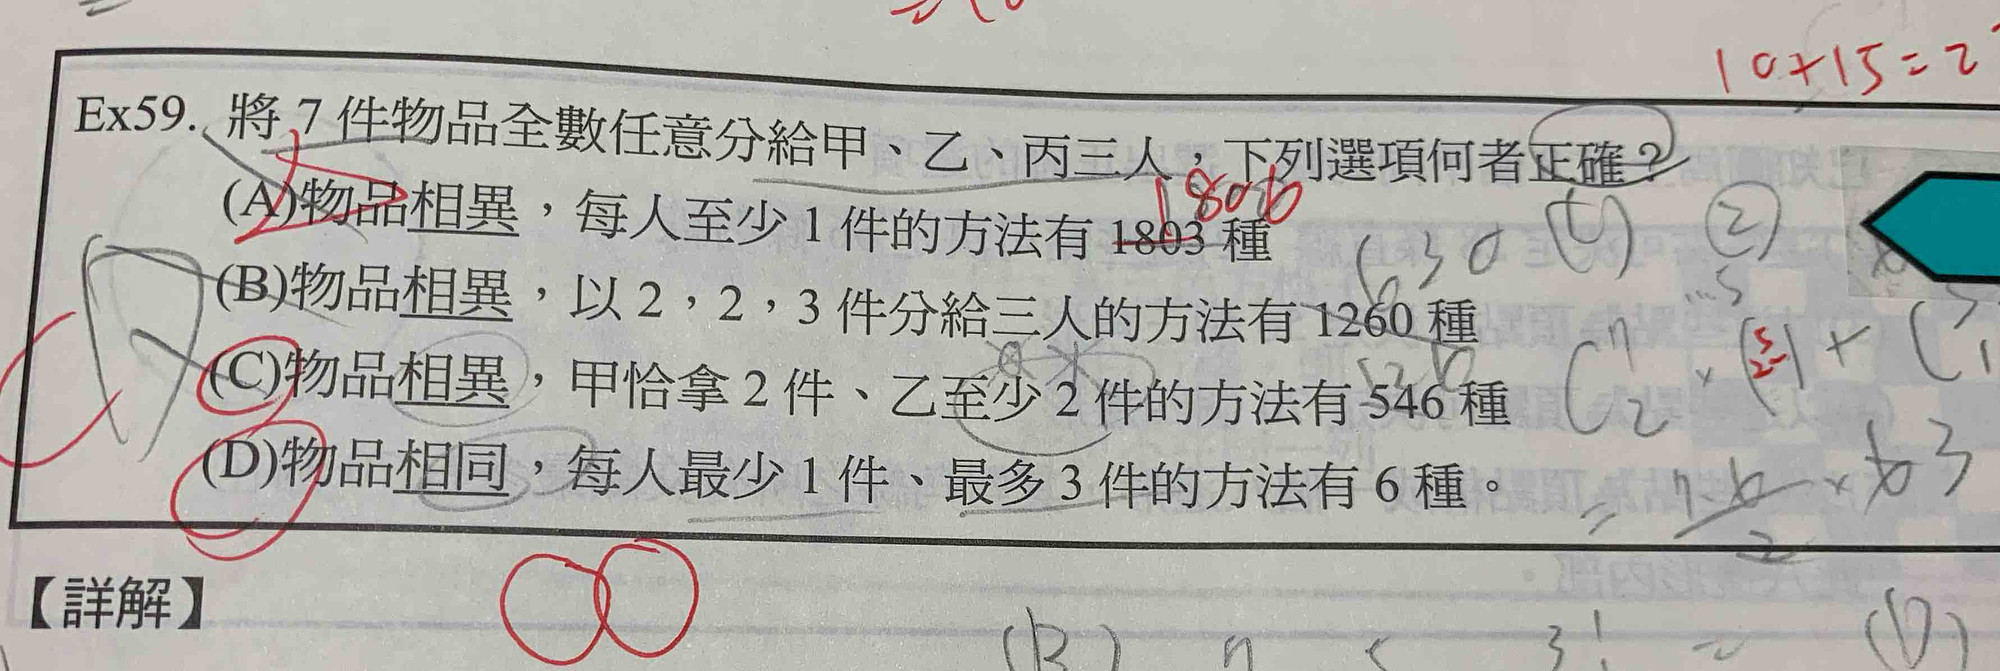 10+15=2
Ex59. 將 7 件物品全數任意分給甲、乙、丙三人，下列選項何者正確？
1806
(A)物品相異，每人至少 1 件的方法有 1803 種
630 (C) ②
(B)物品相異，以 2，2，3 件分給三人的方法有 1260 種
(C)物品相異，甲恰拿 2 件、乙至少 2 件的方法有 546 種
(D)物品相同，每人最少 1 件、最多 3 件的方法有 6 種。
【詳解】
(B) 3! = (D)